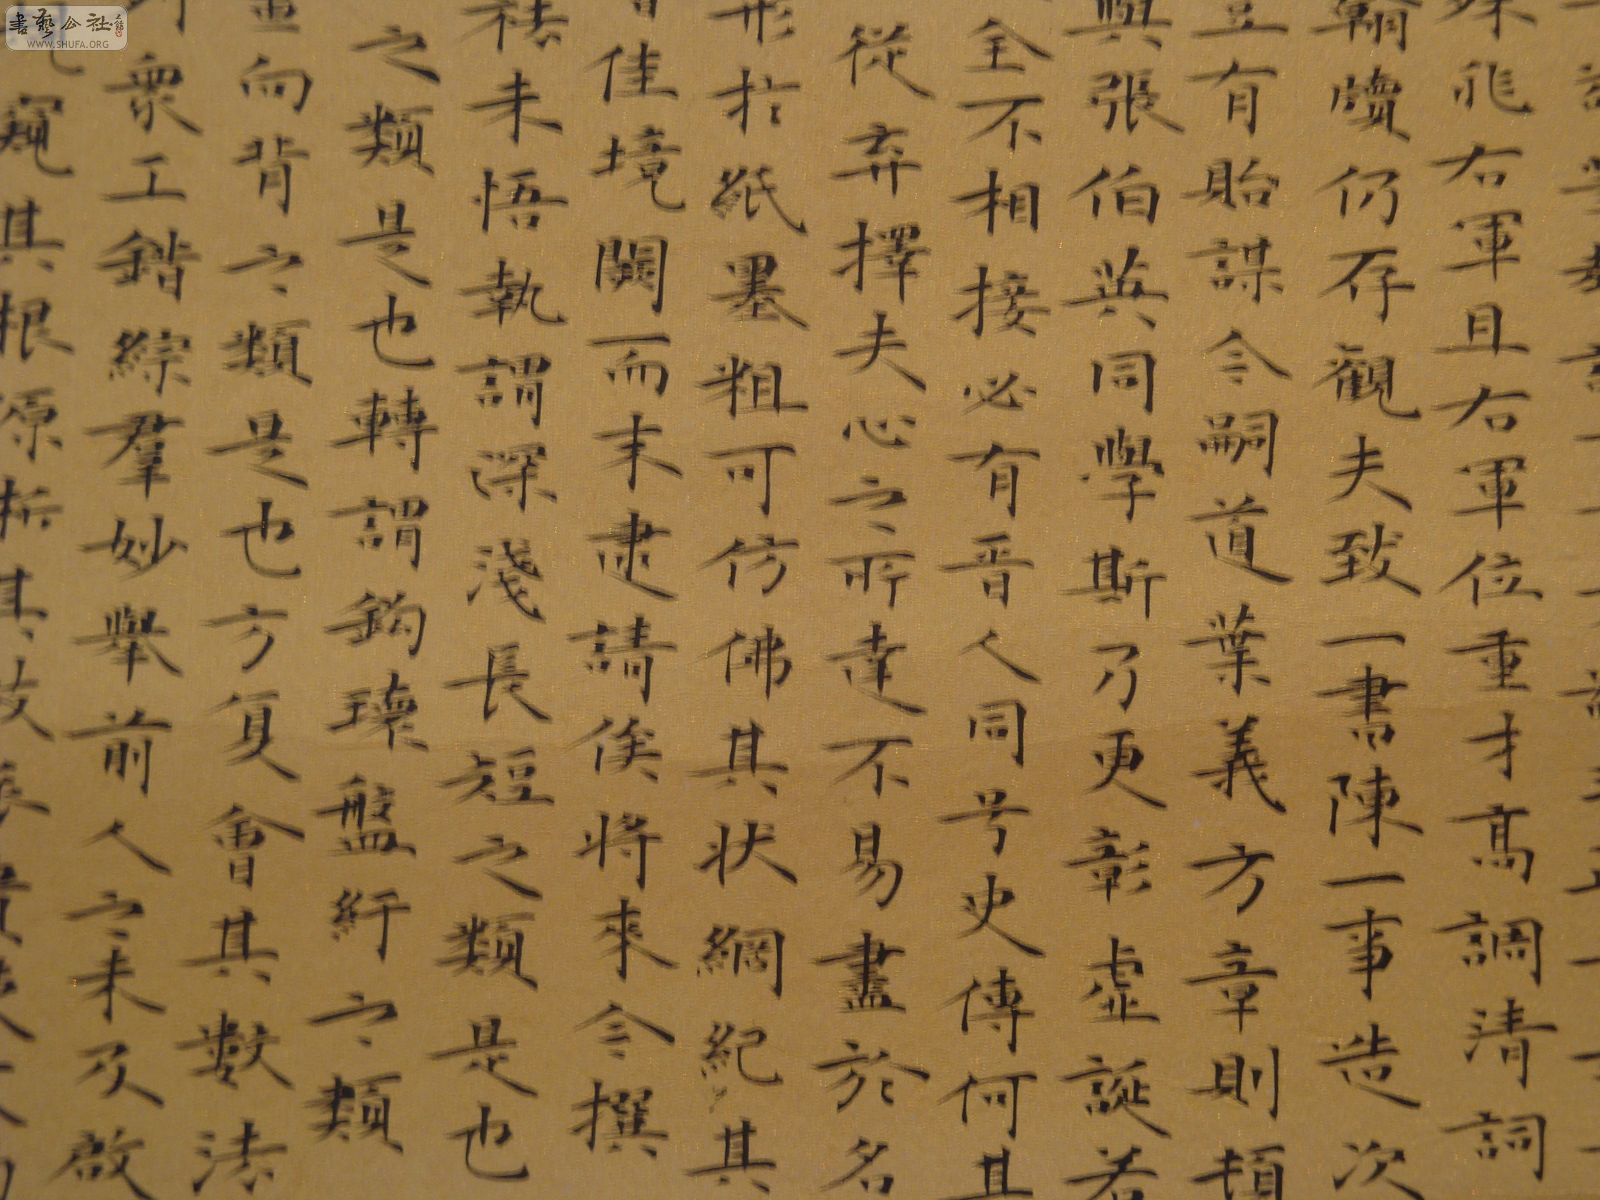 殊非右軍且右軍位重才高調清詞
翰牘仍存觀夫致一書陳一事造次
豈有貽謀令嗣道葉義方章則頓
與張伯英同學斯乃更彰虛誕若
全不相接必有晉人同号史傳何其
從弃擇夫心之所達不易盡於名
形於紙墨粗可仿佛其状綱紀其
佳境闕而未逮請俟將來今撰
未悟執謂深淺長短之類是也
之類是也轉謂鈎環盤紆之類
向背之類是也方復會其數法
衆工錯綜羣妙舉前人之未及啟
窺其根源析其枝
書艺公社
WWW.SHUFA.ORG